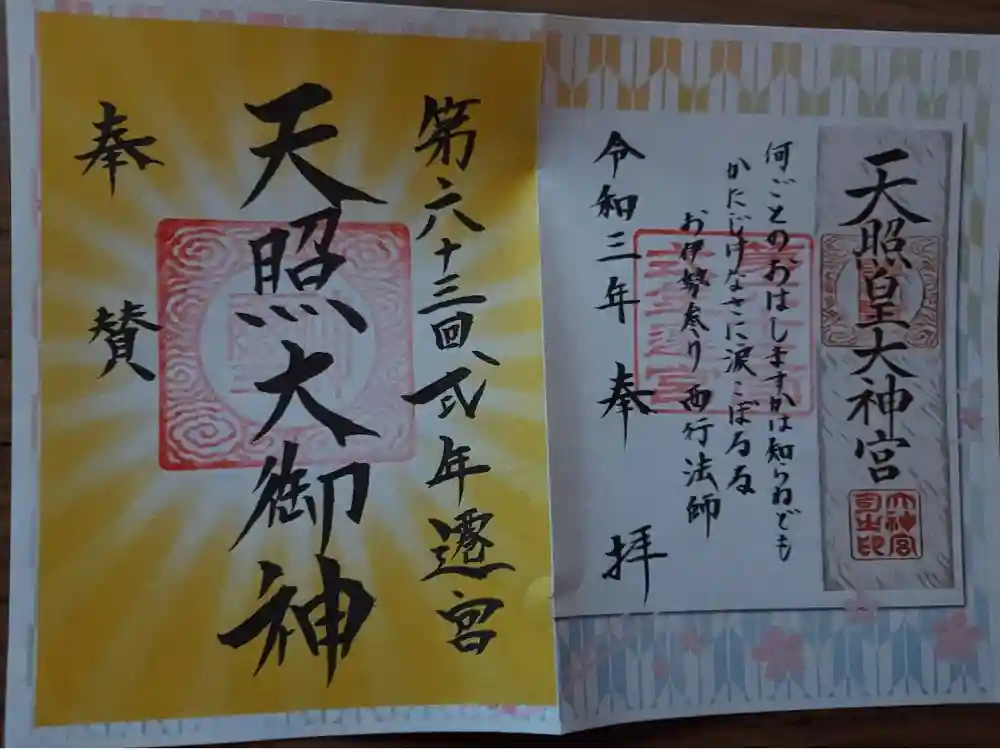 天照皇大神宮
大神宮司之印
何ごとのおはしますかは知らねども
かたじけなさに涙こぼるる
お伊勢参り 西行法師
令和三年 奉拝
第六十三回式年遷宮
天照大御神
奉賛